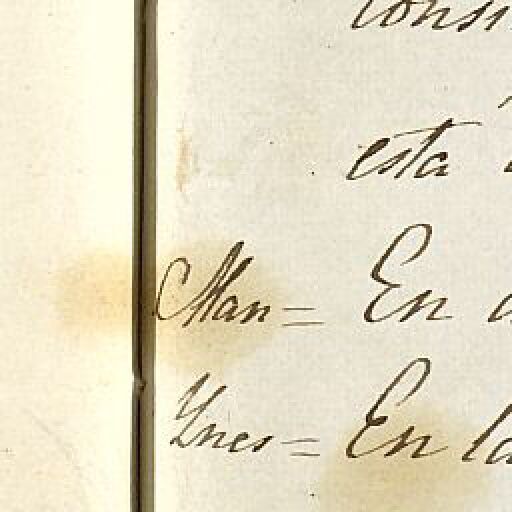 consi
esta
Man= En
Ynes= En la